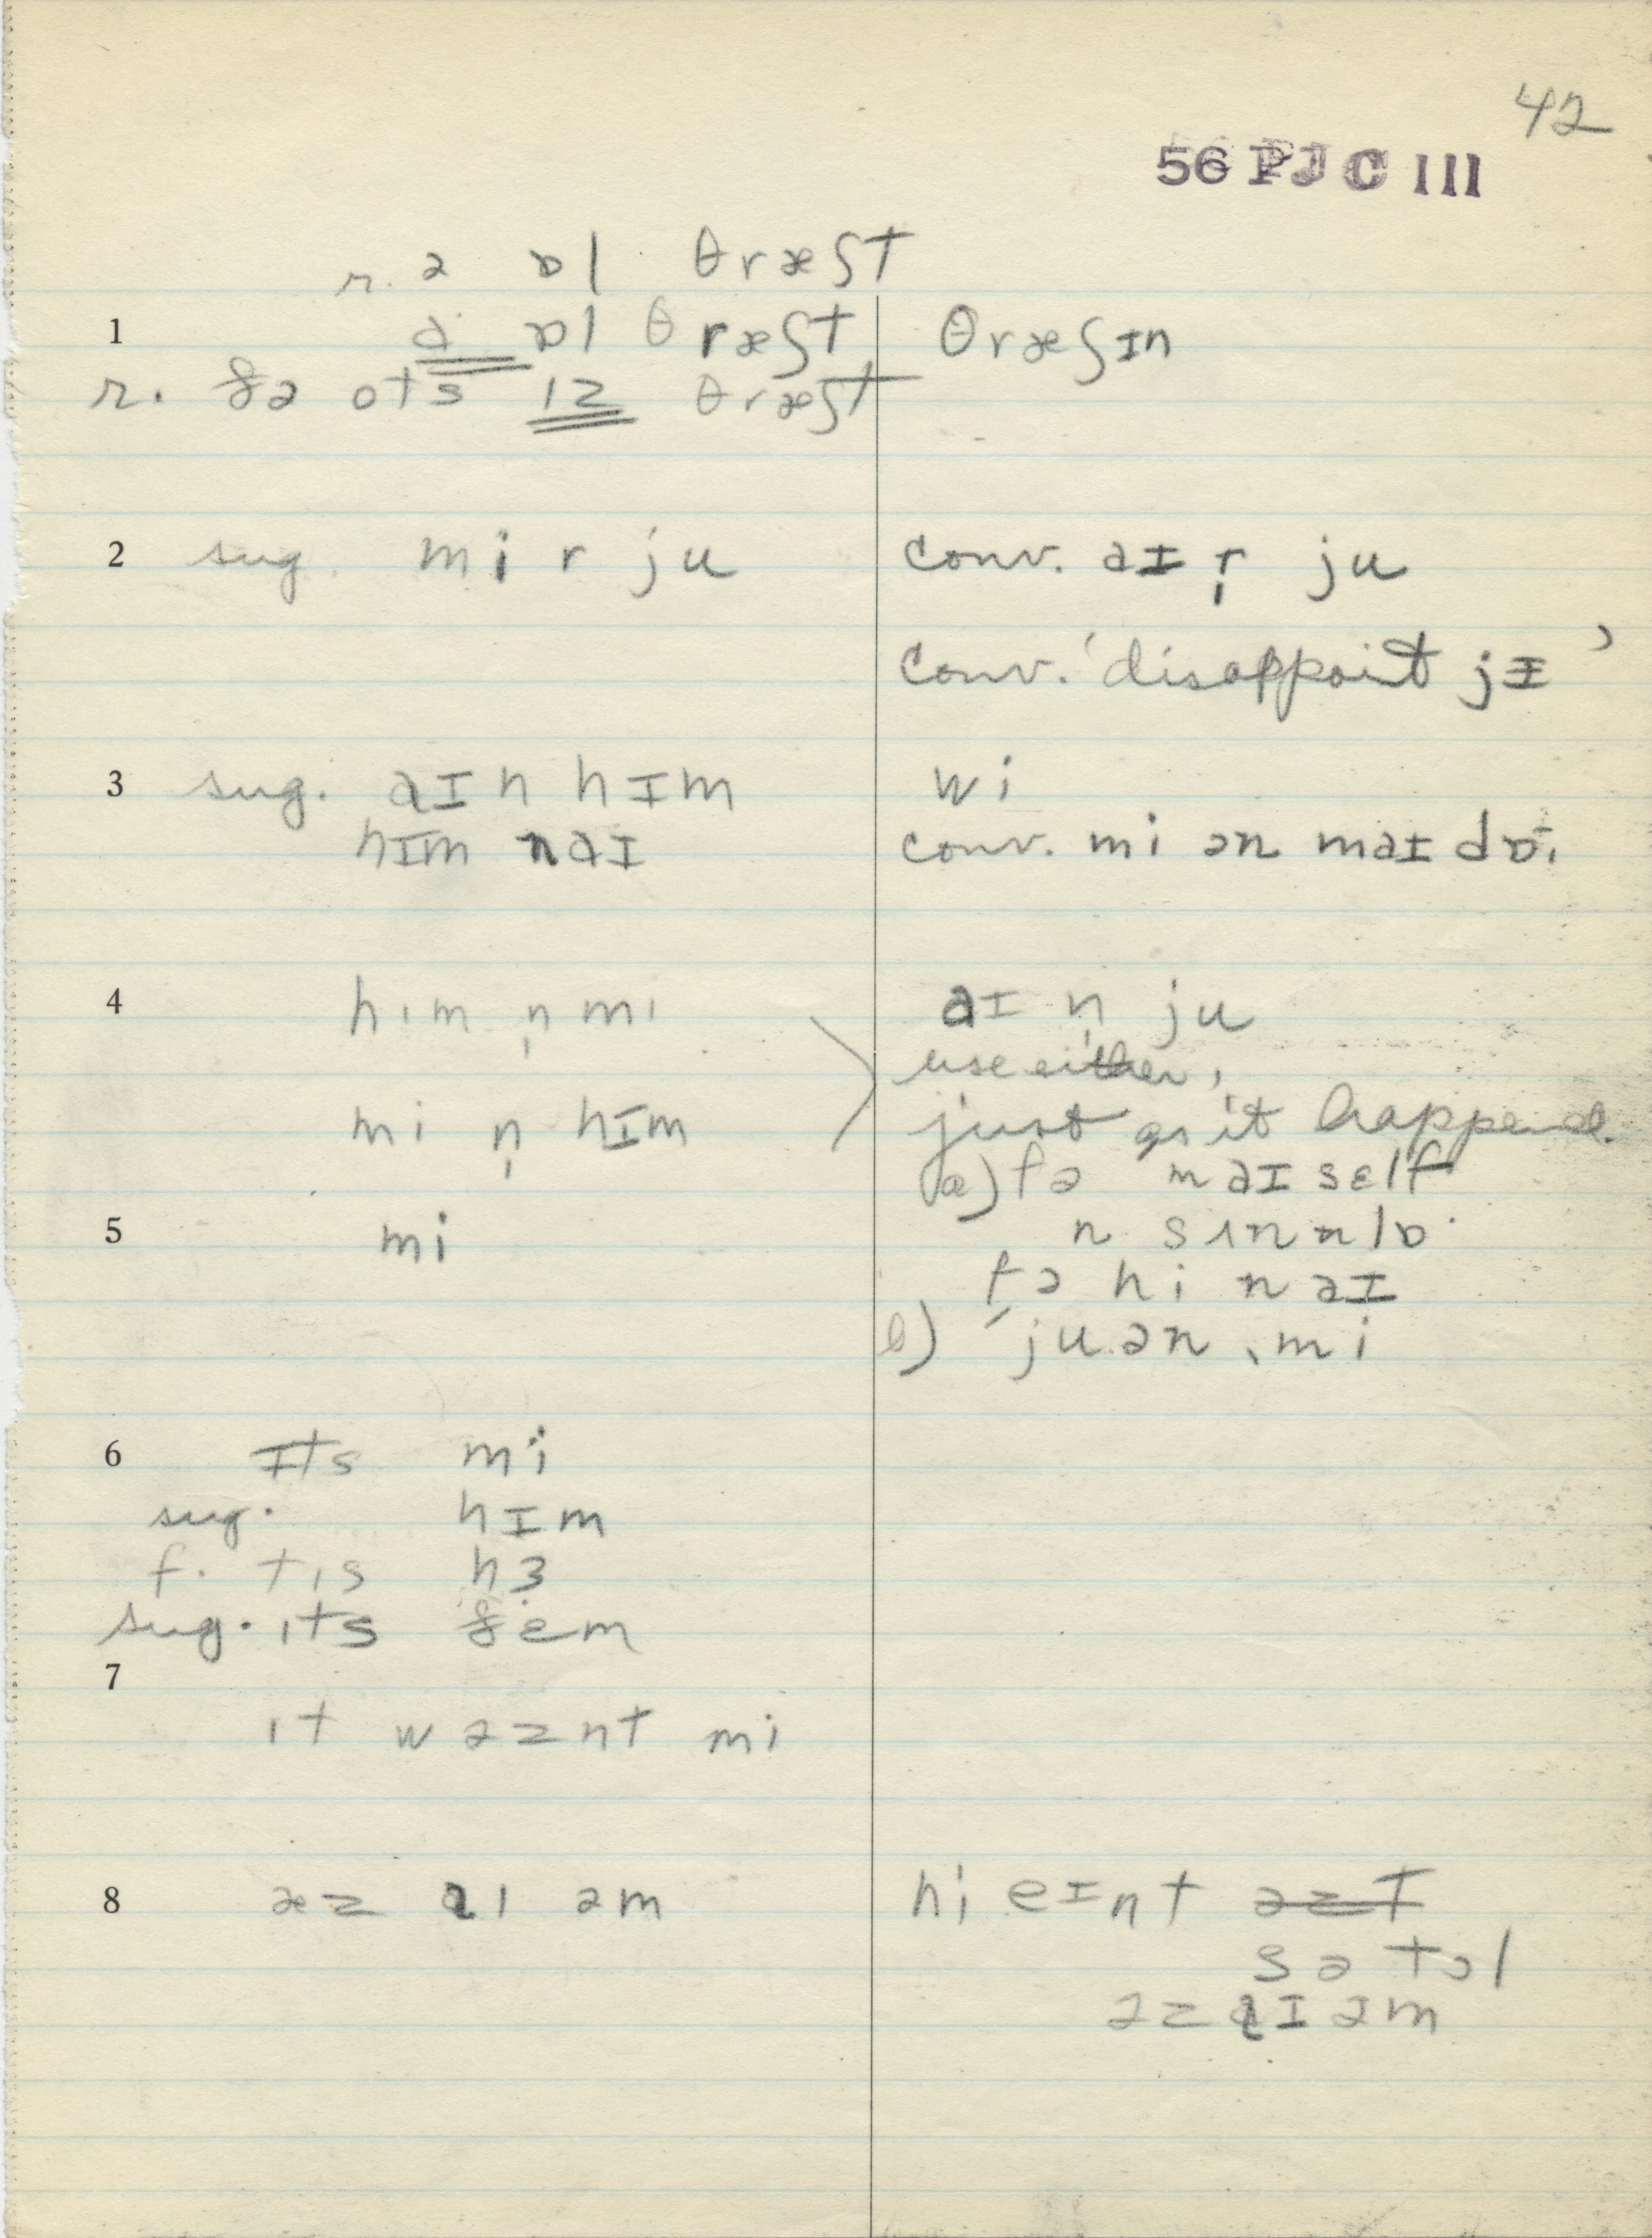 42
56 PJC III
r. ə ɒl θræʃt
1 ə ɒl θræʃt θræʃɪn
r. ðə ots ɪz θræʃt
2 sug. mi r ju conv. aɪ r̩ ju
conv. 'disappoint jɪ'
3 sug. aɪ n hɪm wi
hɪm n aɪ conv. mi ən maɪ dɒ.
4 hɪm n̩ mi aɪ n̩ ju
use either,
mi n̩ hɪm just as it happened.
a) fə maɪ sɛlf
5 mi n
fə hi n aɪ
b) ju ən mi
6 ɪts mi
sug. hɪm
f. tɪs hɜ
sug. ɪts ðem
7
ɪt wəznt mi
8 æz aɪ əm hi eɪnt
sə tɔl
əz aɪ əm